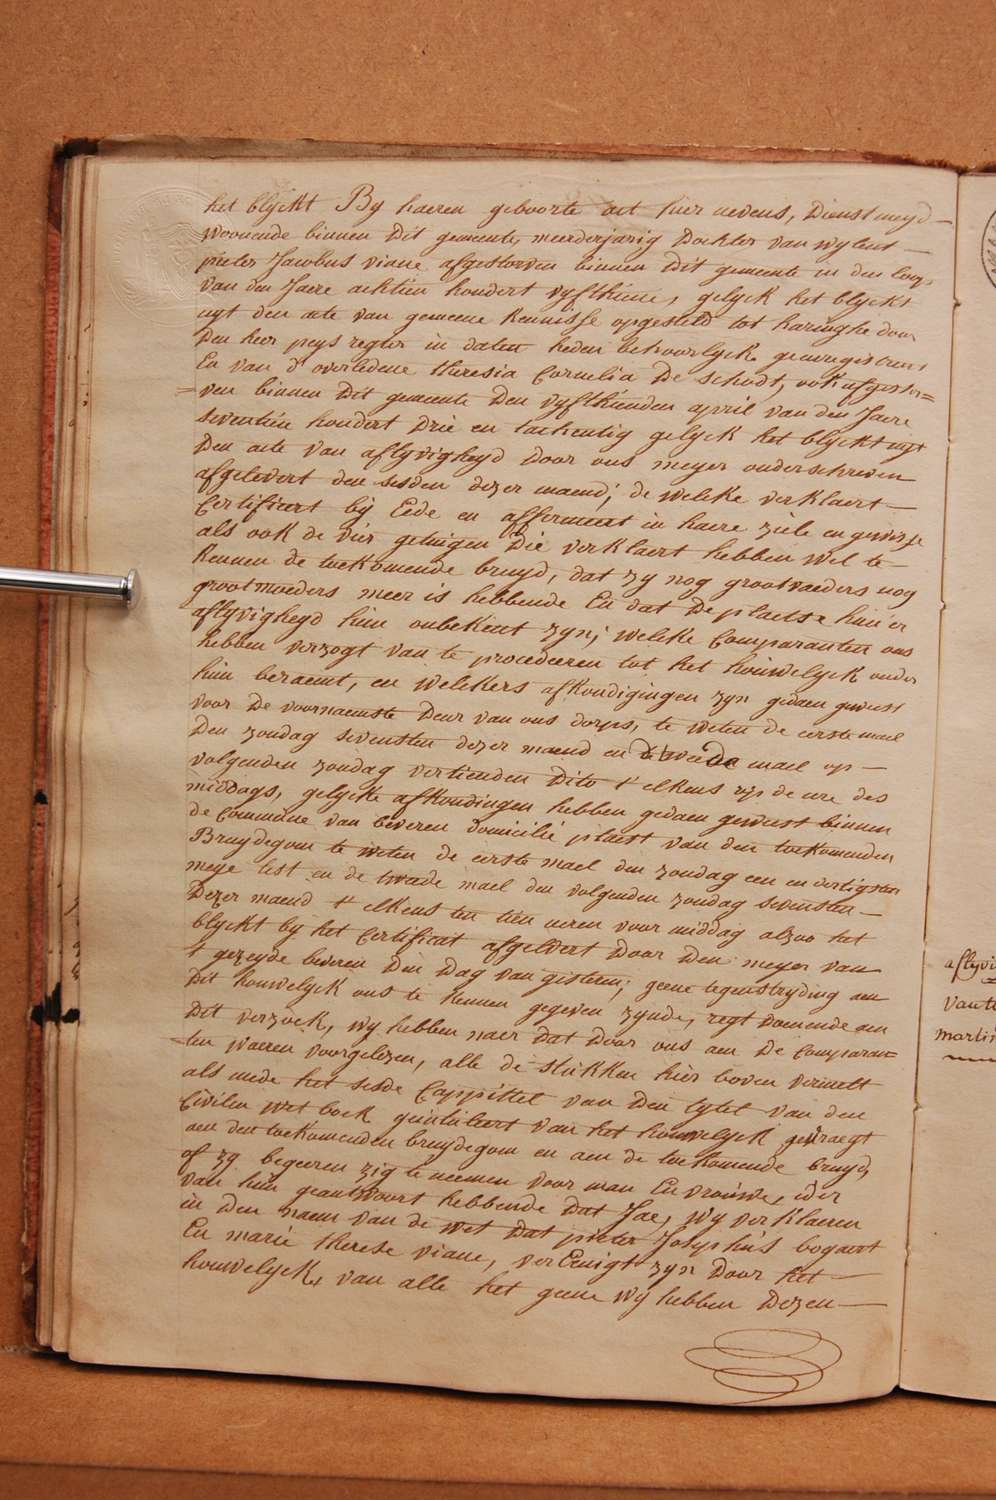 het blyckt By haeren geboorte act hier nevens, Dienstmeyd
woonende binnen Dit gemeente, meerderjarig Dochter van wylent
pieter Jacobus viane afgestorven binnen Dit gemeente in den loop
van den Jaere achtien hondert vyfthiene, gelyck het blyckt
uyt den acte van gemeene kennisse opgesteld tot haringhe door
Den heer peys regter in daten heden behoorlyck geenregistreert
En van d'overledene theresia Cornelia De schodt, ook afgestor=
ven binnen Dit gemeente Den vyfthienden april van den Jaere
seventien hondert Drie en tachentig gelyck het blyckt uyt
Den acte van aflyvigheyd Door ons meyer onderschreven
afgelevert den sesden dezer maend; de welcke verklaert
Certificert by Eede en affirmeert in haere ziele en gewisse
als ook de vier getuigen Die verklaert hebben wel te
kennen de toekomende bruyd, dat zy nog grootvaeders nog
grootmoeders meer is hebbende En dat De plaetse hun'er
aflyvigheyd hun onbekent zyn; welcke Comparanten ons
hebben verzogt van te procederen tot het houwelyck onder
hun beraemt, en welckers afkondigingen zyn gedaen geweest
voor De voornaemste Deur van ons dorps, te weten de eerste mael
Den zondag sevensten dezer maend en tweede mael op
volgenden zondag vertienden Dito t'elkens op de ure des
middags, gelycke afkondingen hebben gedaen geweest binnen
de Commune van beveren domicilie plaest van den toekomenden
Bruydegom te weten de eerste mael den zondag een en dertigsten
meye lest en de twede mael den volgenden zondag sevensten
Dezer maend t'elkens ten tien ueren voor middag alzoo het
blyckt by het Certificat afgelevert Door Den meyer van
't gezeyde beveren Den Dag van gisteren; geene tegenstryding aen
Dit houwelyck ons te kennen gegeven zynde, regt doenende aen
Dit verzoek, wy hebben naer dat Door ons aen De Comparan=
ten waeren voorgelezen, alle de stukken hier boven vermelt
als mede het sesde Cappittel van Den tytel van den
Civilen wet boek geintuleert van het houwelyck gevraegt
aen den toekomenden bruydegom en aen de toekomende bruyd,
of zy begeeren zig te neemen voor man En vrouwe, ider
van hun geantwoort hebbende Dat Jae, wy verklaeren
in Den naem van de wet Dat pieter Josephus bogaert
En marie therese viane, verEenigt zyn Door het
houwelyck, van alle het geene wy hebben Dezen
aflyvi
vante
martin